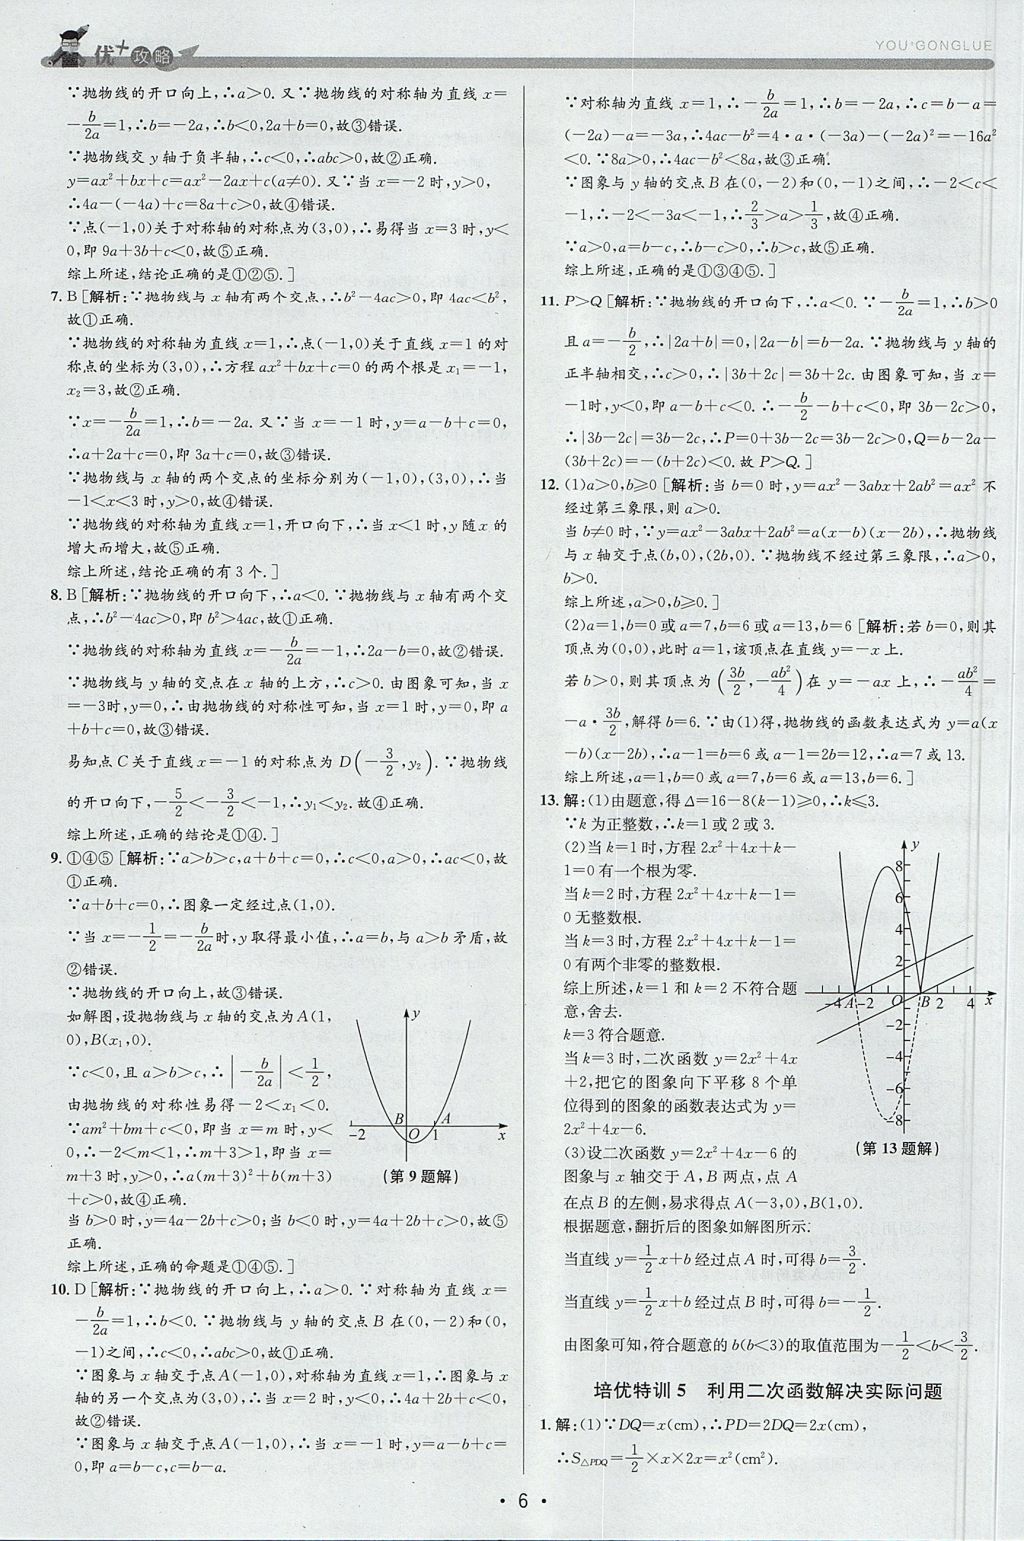 优+攻略
YOU'GONGLUE
∵抛物线的开口向上,∴a>0.又∵抛物线的对称轴为直线x=
-b/2a=1,∴b=-2a,∴b<0,2a+b=0,故③错误.
∵抛物线交y轴于负半轴,∴c<0,∴abc>0,故②正确.
y=ax²+bx+c=ax²-2ax+c(a≠0).又∵当x=-2时,y>0,
∴4a-(-4a)+c=8a+c>0,故④错误.
∵点(-1,0)关于对称轴的对称点为(3,0),∴易得当x=3时,y<
0,即9a+3b+c<0,故⑤正确.
综上所述,结论正确的是①②⑤.]
7. B[解析:∵抛物线与x轴有两个交点,∴b²-4ac>0,即4ac<b²,
故①正确.
∵抛物线的对称轴为直线x=1,∴点(-1,0)关于直线x=1的对
称点的坐标为(3,0),∴方程ax²+bx+c=0的两个根是x₁=-1,
x₂=3,故②正确.
∵x=-b/2a=1,∴b=-2a.又∵当x=-1时,y=a-b+c=0,
∴a+2a+c=0,即3a+c=0,故③错误.
∵抛物线与x轴的两个交点的坐标分别为(-1,0),(3,0),∴当
-1<x<3时,y>0,故④错误.
∵抛物线的对称轴为直线x=1,开口向下,∴当x<1时,y随x的
增大而增大,故⑤正确.
综上所述,结论正确的有3个.]
8. B[解析:∵抛物线的开口向下,∴a<0.∵抛物线与x轴有两个交
点,∴b²-4ac>0,即b²>4ac,故①正确.
∵抛物线的对称轴为直线x=-b/2a=-1,∴2a-b=0,故②错误.
∵抛物线与y轴的交点在x轴的上方,∴c>0.由图象可知,当x
=-3时,y=0,∴由抛物线的对称性可知,当x=1时,y=0,即a
+b+c=0,故③错误.
易知点C关于直线x=-1的对称点为D(-3/2,y₂).∵抛物线
的开口向下,-5/2<-3/2<-1,∴y₁<y₂.故④正确.
综上所述,正确的结论是①④.]
9. ①④⑤[解析:∵a>b>c,a+b+c=0,∴c<0,a>0,∴ac<0,故
①正确.
∵a+b+c=0,∴图象一定经过点(1,0).
∵当x=-1/2=-b/2a时,y取得最小值,∴a=b,与a>b矛盾,故
②错误.
∵抛物线的开口向上,故③错误.
如解图,设抛物线与x轴的交点为A(1,
0),B(x₁,0).
∵c<0,且a>b>c,∴|-b/2a|<1/2,
由抛物线的对称性易得-2<x₁<0.
∵am²+bm+c<0,即当x=m时,y<
0,∴-2<m<1,∴m+3>1,即当x=
m+3时,y>0,∴a(m+3)²+b(m+3)
+c>0,故④正确.
y
B
A
-2
O
1
x
(第9题解)
当b>0时,y=4a-2b+c>0;当b<0时,y=4a+2b+c>0,故⑤
正确.
综上所述,正确的命题是①④⑤.]
10. D[解析:∵抛物线的开口向上,∴a>0.∵对称轴为直线x=
-b/2a=1,∴b<0.∵抛物线与y轴的交点B在(0,-2)和(0,
-1)之间,∴c<0,∴abc>0,故①正确.
∵图象与x轴交于点A(-1,0),对称轴为直线x=1,∴图象与x
轴的另一个交点为(3,0),∴当x=2时,y<0,∴4a+2b+c<0,
故②错误.
∵图象与x轴交于点A(-1,0),∴当x=-1时,y=a-b+c=
0,即a=b-c,c=b-a.
∵对称轴为直线x=1,∴-b/2a=1,∴b=-2a,∴c=b-a=
(-2a)-a=-3a,∴4ac-b²=4·a·(-3a)-(-2a)²=-16a²
<0.∵8a>0,∴4ac-b²<8a,故③正确.
∵图象与y轴的交点B在(0,-2)和(0,-1)之间,∴-2<c<
-1,∴-2<-3a<-1,∴2/3>a>1/3,故④正确.
∵a>0,a=b-c,∴b-c>0,∴b>c,故⑤正确.
综上所述,正确的是①③④⑤.]
11. P>Q[解析:∵抛物线的开口向下,∴a<0.∵-b/2a=1,∴b>0
且a=-b/2,∴|2a+b|=0,|2a-b|=b-2a.∵抛物线与y轴的
正半轴相交,∴c>0,∴|3b+2c|=3b+2c.由图象可知,当x=
-1时,y<0,即a-b+c<0.∴-b/2-b+c<0,即3b-2c>0,
∴|3b-2c|=3b-2c,∴P=0+3b-2c=3b-2c>0,Q=b-2a-
(3b+2c)=-(b+2c)<0.故P>Q.]
12. (1)a>0,b≥0[解析:当b=0时,y=ax²-3abx+2ab²=ax²不
经过第三象限,则a>0.
当b≠0时,∵y=ax²-3abx+2ab²=a(x-b)(x-2b),∴抛物线
与x轴交于点(b,0),(2b,0).∵抛物线不经过第三象限,∴a>0,
b>0.
综上所述,a>0,b≥0.]
(2)a=1,b=0或a=7,b=6或a=13,b=6[解析:若b=0,则其
顶点为(0,0),此时a=1,该顶点在直线y=-x上.
若b>0,则其顶点为(3b/2,-ab²/4)在y=-ax上,∴-ab²/4=
-a·3b/2,解得b=6.∵由(1)得,抛物线的函数表达式为y=a(x
-b)(x-2b),∴a-1=b=6或a-1=2b=12,∴a=7或13.
综上所述,a=1,b=0或a=7,b=6或a=13,b=6.]
13. 解:(1)由题意,得Δ=16-8(k-1)≥0,∴k≤3.
∵k为正整数,∴k=1或2或3.
(2)当k=1时,方程2x²+4x+k-
1=0有一个根为零.
当k=2时,方程2x²+4x+k-1=
0无整数根.
当k=3时,方程2x²+4x+k-1=
0有两个非零的整数根.
综上所述,k=1和k=2不符合题
意,舍去.
k=3符合题意.
当k=3时,二次函数y=2x²+4x
+2,把它的图象向下平移8个单
位得到的图象的函数表达式为y=
2x²+4x-6.
(3)设二次函数y=2x²+4x-6的
图象与x轴交于A,B两点,点A
y
8
6
4
2
-4
A
-2
O
B
2
4
x
-2
-4
-6
-8
(第13题解)
在点B的左侧,易求得点A(-3,0),B(1,0).
根据题意,翻折后的图象如解图所示:
当直线y=1/2x+b经过点A时,可得b=3/2.
当直线y=1/2x+b经过点B时,可得b=-1/2.
由图象可知,符合题意的b(b<3)的取值范围为-1/2<b<3/2.
培优特训5 利用二次函数解决实际问题
1. 解:(1)∵DQ=x(cm),∴PD=2DQ=2x(cm),
∴S△PDQ=1/2×x×2x=x²(cm²).
· 6 ·